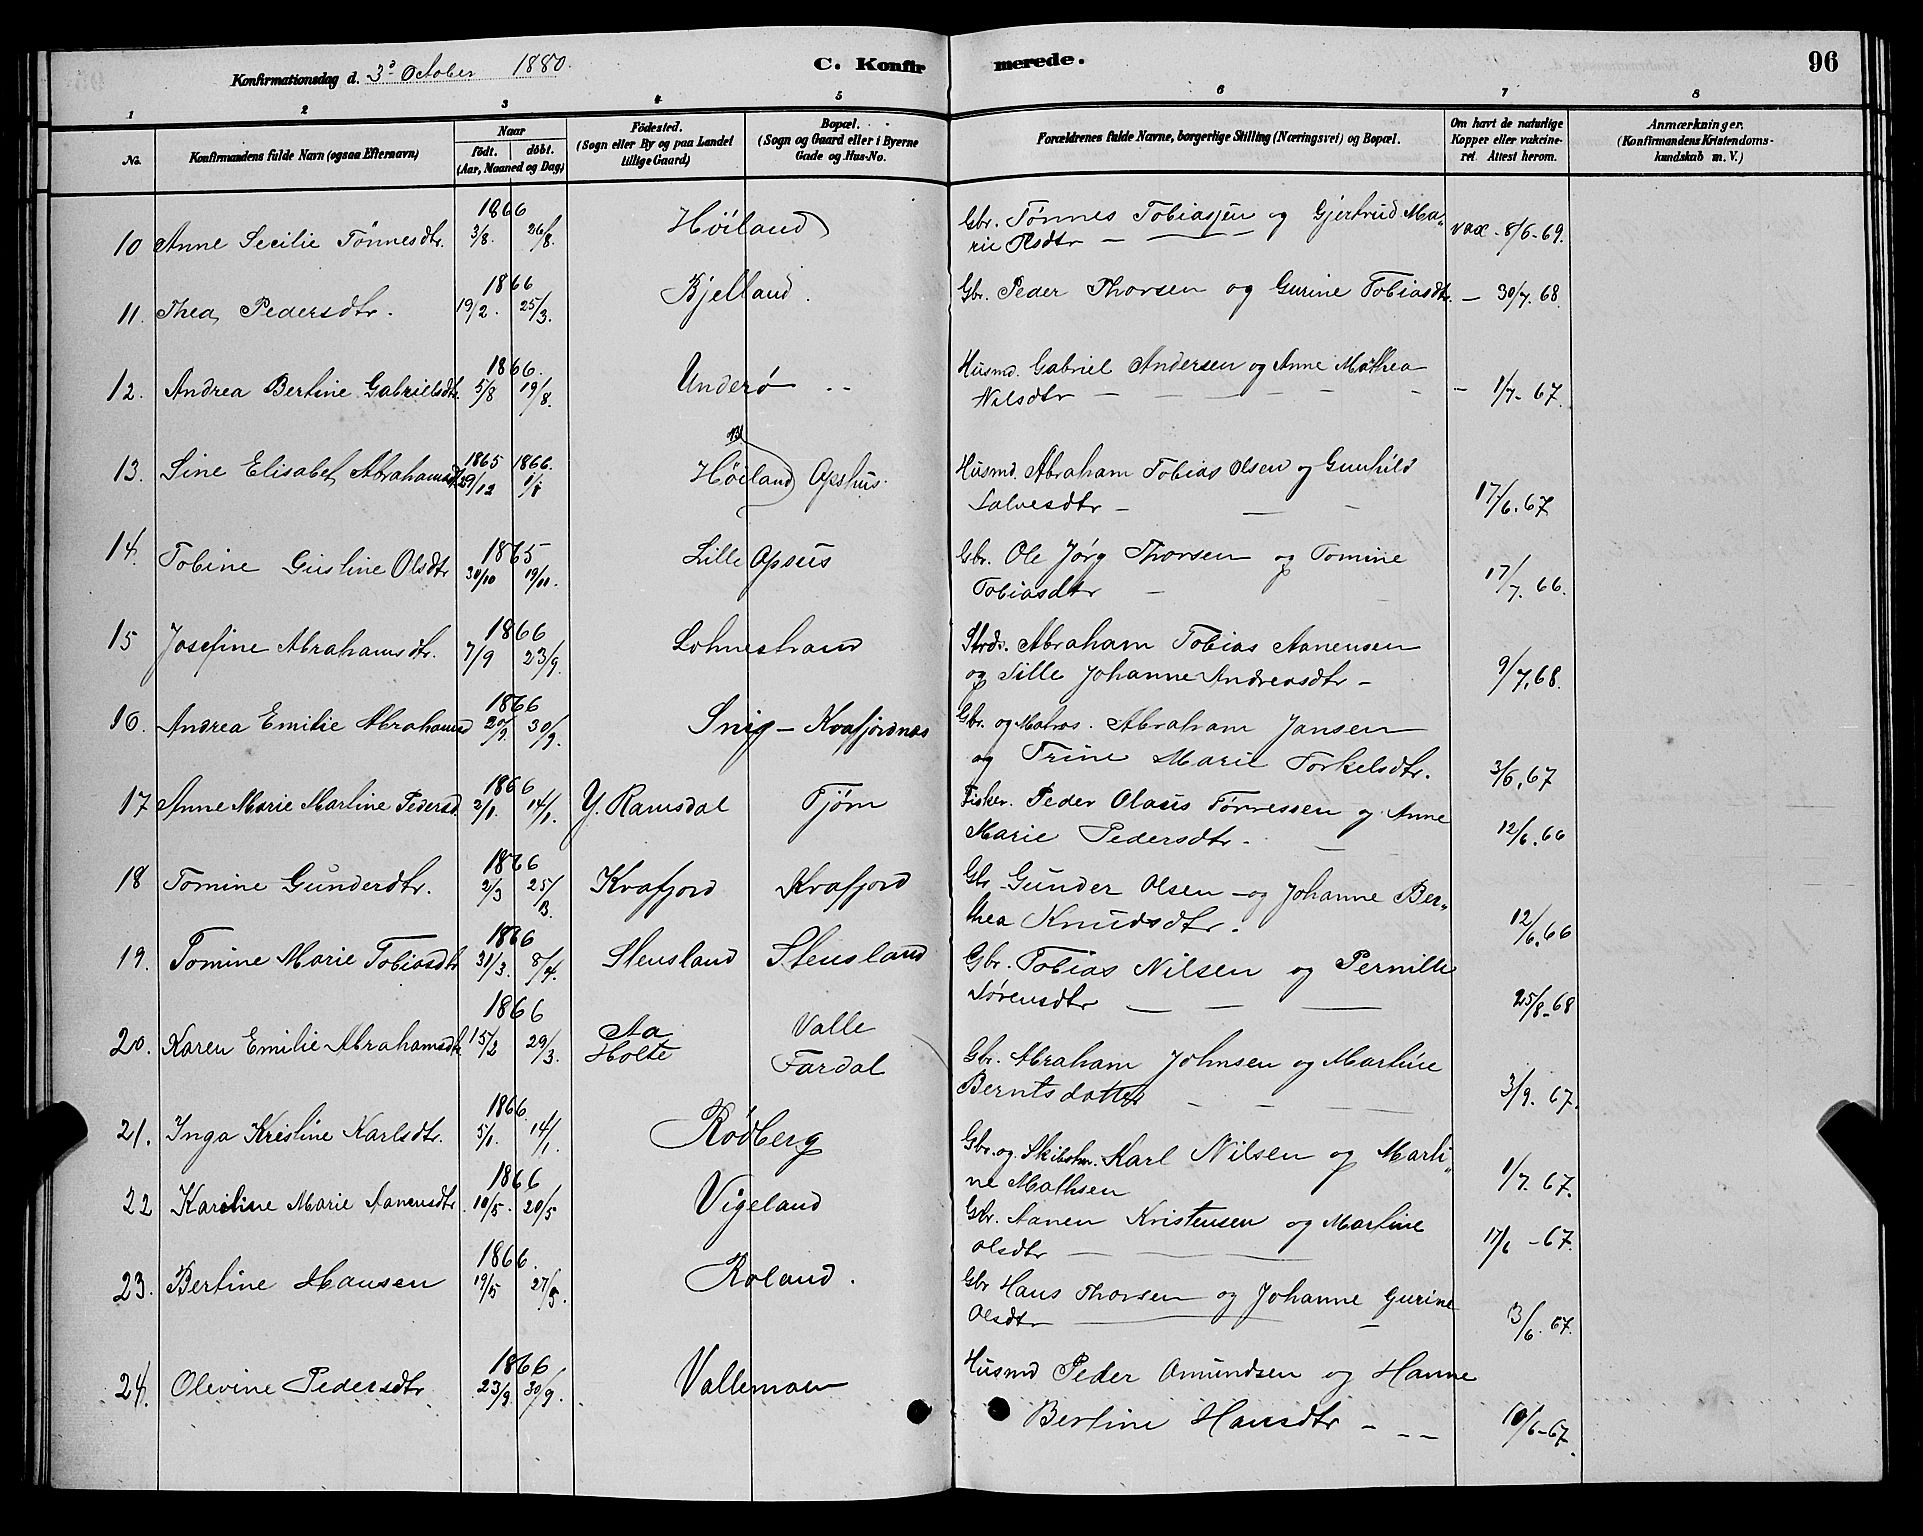 Konfirmationsdag d. 3d October 1880. C. Konfirmerede. 96
1 2 3 4 5 6 7 8
No. Konfirmandens fulde Navn (ogsaa Efternavn) Naar født. døbt. (Aar, Maaned og Dag) Födested. (Sogn eller By og paa Landet tillige Gaard) Bopæl. (Sogn og Gaard eller i Byerne Gade og Hus-No. Forældrenes fulde Navne, borgerlige Stilling (Næringsvei) og Bopæl. Om havt de naturlige Kopper eller vakcineret. Attest herom. Anmærkninger. (Konfirmandens Kristendomskundskab m. V.)
10 Anne Secilie Tønnesdtr. 1866 3/8. 26/8. Høiland Gbr. Tønnes Tobiassen og Gjertrud Ma„
rie Olsdtr — vax - 8/6-69.
11. Thea Pedersdtr. 1866 19/2. 25/3. Kjelland. Gbr. Peder Thorsen og Gurine Tobiasdtr. — 30/7. 68.
12. Andrea Bertine Gabrielsdtr. 1866. 5/8 19/8. Underø -- Husmd. Gabriel Andersen og Anne Mathea
Nilsdtr — — — — 1/7- 67.
13. Sine Elisabet Abrahamsdtr 1865 29/12 1866. 1/1 Høiland Opshus. Husmd. Abraham Tobias Olsen og Gunhild
Salvesdtr — — — 17/6. 67
14. Tobine Gustine Olsdtr 1865 30/10 19/11. Lille Opsus Gbr. Ole Jørg Thorsen og Tomine
Tobiasdtr — 17/7. 66.
15 Josefine Abrahamsdtr. 1866 7/9 23/9. Lohnestrand Strds. Abraham Tobias Aanensen
og Sille Johanne Andreasdtr — 9/7. 68.
16. Andrea Emilie Abrahamsd 1866 20/9. 30/9. Snig — Kvafjordnes Gbr. og Matros. Abraham Jansen
og Trine Marie Torkelsdtr. 3/6. 67
17 Anne Marie Martine Pedersd. 1866 2/1. 14/1. Y. Ramsdal Tjøm Fisker. Peder Olaus Tønnessen og Anne
Marie Pedersdtr. — 12/6. 66
18 Tomine Gundersdtr. 1866 2/3 25/3. Kvafjord Kvafjord Gbr. Gunder Olsen — og Johanne Ber„
thea Knudsdtr. 12/6. 66
19. Tomine Marie Tobiasdtr 1866 31/3. 8/4. Stensland Stensland Gbr. Tobias Nilsen og Pernille
Sørensdtr — — — 25/8-68
20. Karen Emilie Abrahamsdtr 1866 15/2 29/3. Aa Holte Valle Fardal Gbr. Abraham Johnsen og Martine
Berntsdatter — — — 3/9. 67.
21. Inga Kristine Karlsdtr. 1866. 5/1. 14/1. Rødberg Gbr. og Skibstm. Karl Nilsen og Marti„
ne Mathsen 1/7. 67.
22 Karoline Marie Aanensdtr. 1866 10/5. 20/5 Vigeland Gbr. Aanen Kristensen og Martine
Olsdtr — 17/6 - 67.
23. Bertine Hansen 1866. 19/5 27/5. Roland. Gbr Hans Thorsen og Johanne Gurine
Olsdtr — 3/6. 67.
24. Olevine Pedersdtr 1866 23/9. 30/9. Vallemoen Husmd Peder Omundsen og Hanne
Bertine Hansdtr - -- 10/6-67.